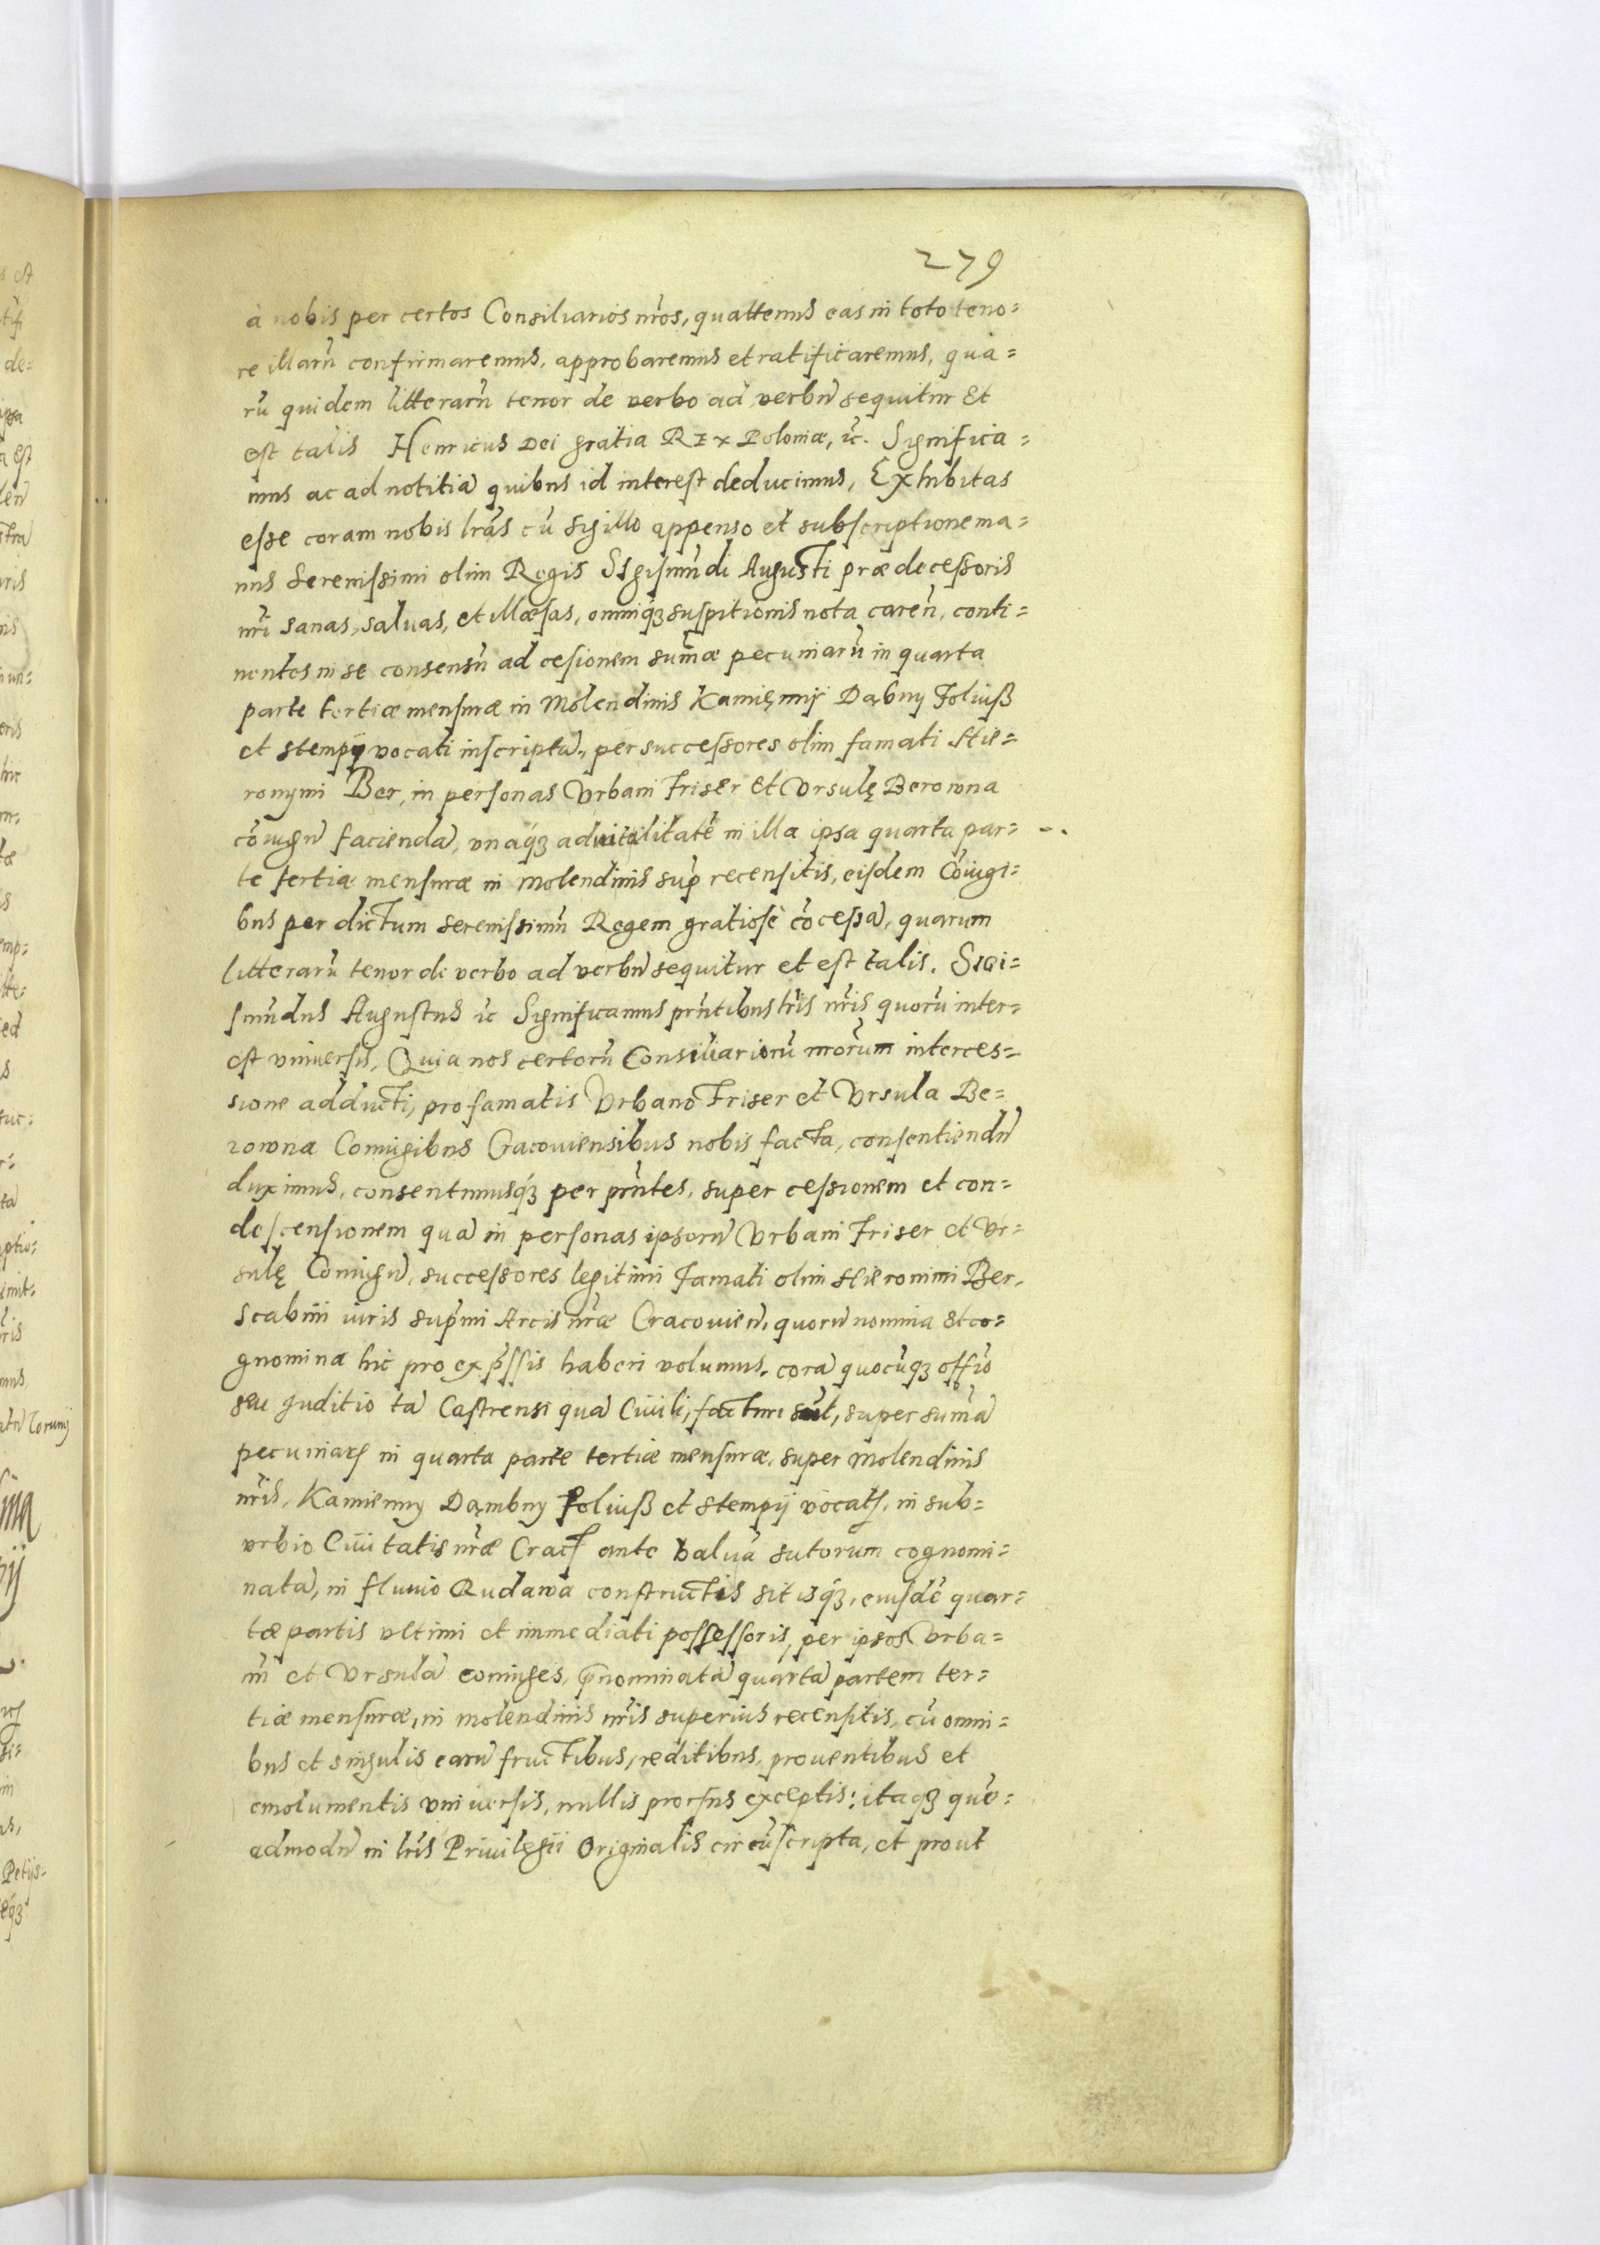 279
à nobis per certos Consiliarios nr̃os, quattenus eas in toto teno=
re illarũ confirmaremus, approbaremus et ratificaremus, qua=
rũ quidem litterarũ tenor de verbo ad verbũ sequitur Et
est talis Henricus Dei gratia REx Poloniæ, ꝛc. Significa=
mus ac ad notitiã quibus id interest deducimus, Exhibitas
esse coram nobis lr̃as cũ sigillo appenso et subscriptione ma=
nus Serenissimi olim Regis Sigismũdi Augusti prædecessoris
nr̃i sanas, saluas, et illæsas, omniq́ꝫ suspitionis nota careñ, conti=
nentes in se consensũ ad cesionem sum̃æ pecuniarũ in quarta
parte tertiæ mensuræ in Molendinis Kamięnnÿ Dąbny Foliuß
et stempÿ vocati inscriptã, per successores olim famati Hie=
ronymi Ber, in personas Vrbani Friser et Vrsulę Berowna
cõiugũ faciendã, vnaq́ꝫ aduitalitatẽ in illa ipsa quarta par=
te tertiæ mensuræ in molendinis sup̃ recensitis, eisdem Cõiugi=
bus per dictum serenissimũ Regem gratiosè cõcessã, quarum
litterarũ tenor de verbo ad verbũ sequitur et est talis. SIGI=
smũdus Augustus ꝛc Significamus pr̃ntibus lr̃is nr̃is quorũ inter=
est vniuersis, Quia nos certorũ Consiliariorũ nr̃orum interces=
sione adducti, pro famatis Vrbano Friser et Vrsula Be=
rowna Coniugibus Cracouiensibus nobis facta, consentiendũ
duximus, consentimusq́ꝫ per pr̃ntes, super cessionem et con=
descensionem quã in personas ipsorũ Vrbani Friser et Vr=
sulę Coniugũ, successores legitimi Famati olim Hieronimi Ber,
Scabini iuris sup̃mi Arcis nr̃æ Cracouieñ, quorũ nomina et co=
gnomina hic pro exp̃ssis haberi volumus, corã quocũqꝫ offi̇o
seu Juditio tã Castrensi quã Ciuili, facturi sũt, super sum̃ã
pecuniarꝭ in quarta parte tertiæ mensuræ, super molendinis
nr̃is, Kamienny Dąmbny Foliuß et stempÿ vocatꝭ, in sub=
vrbio Ciuitatis nr̃æ Cracꝭ ante valuã sutorum cognomi=
natã, in fluuio Rudawa constructis sitisq́ꝫ, eiusdẽ quar=
tæ partis vltimi et immediati possessoris, per ipsos Vrba=
nũ et Vrsulã coniuges, p̃nominatã quartã partem ter=
tiæ mensuræ, in molendinis nr̃is superius recensitis, cũ omni=
bus et singulis earũ fructibus, reditibus, prouentibus et
emolumentis vniuersis, nullis prorsus exceptis: itaqꝫ quẽ=
admodũ in lr̃is Priuilegii Originalis circũscripta, et prout